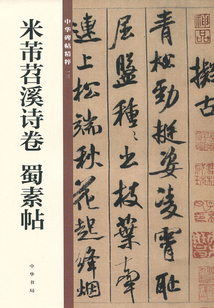 米芾苕溪诗卷 蜀素帖
中华书局
中华碑帖精粹
青松勁挺姿凌霄耻
屈盤種々出枝葉牽
連上松端秋花起絳烟